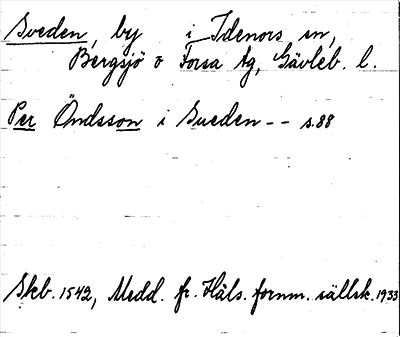 Sveden, by i Idenors sn,
Bergsjö o Forsa tg, Gävleb. l.
Per Öndsson i Sueden -- s. 88
Skb. 1542, Medd. fr. Häls. fornm. sällsk. 1933